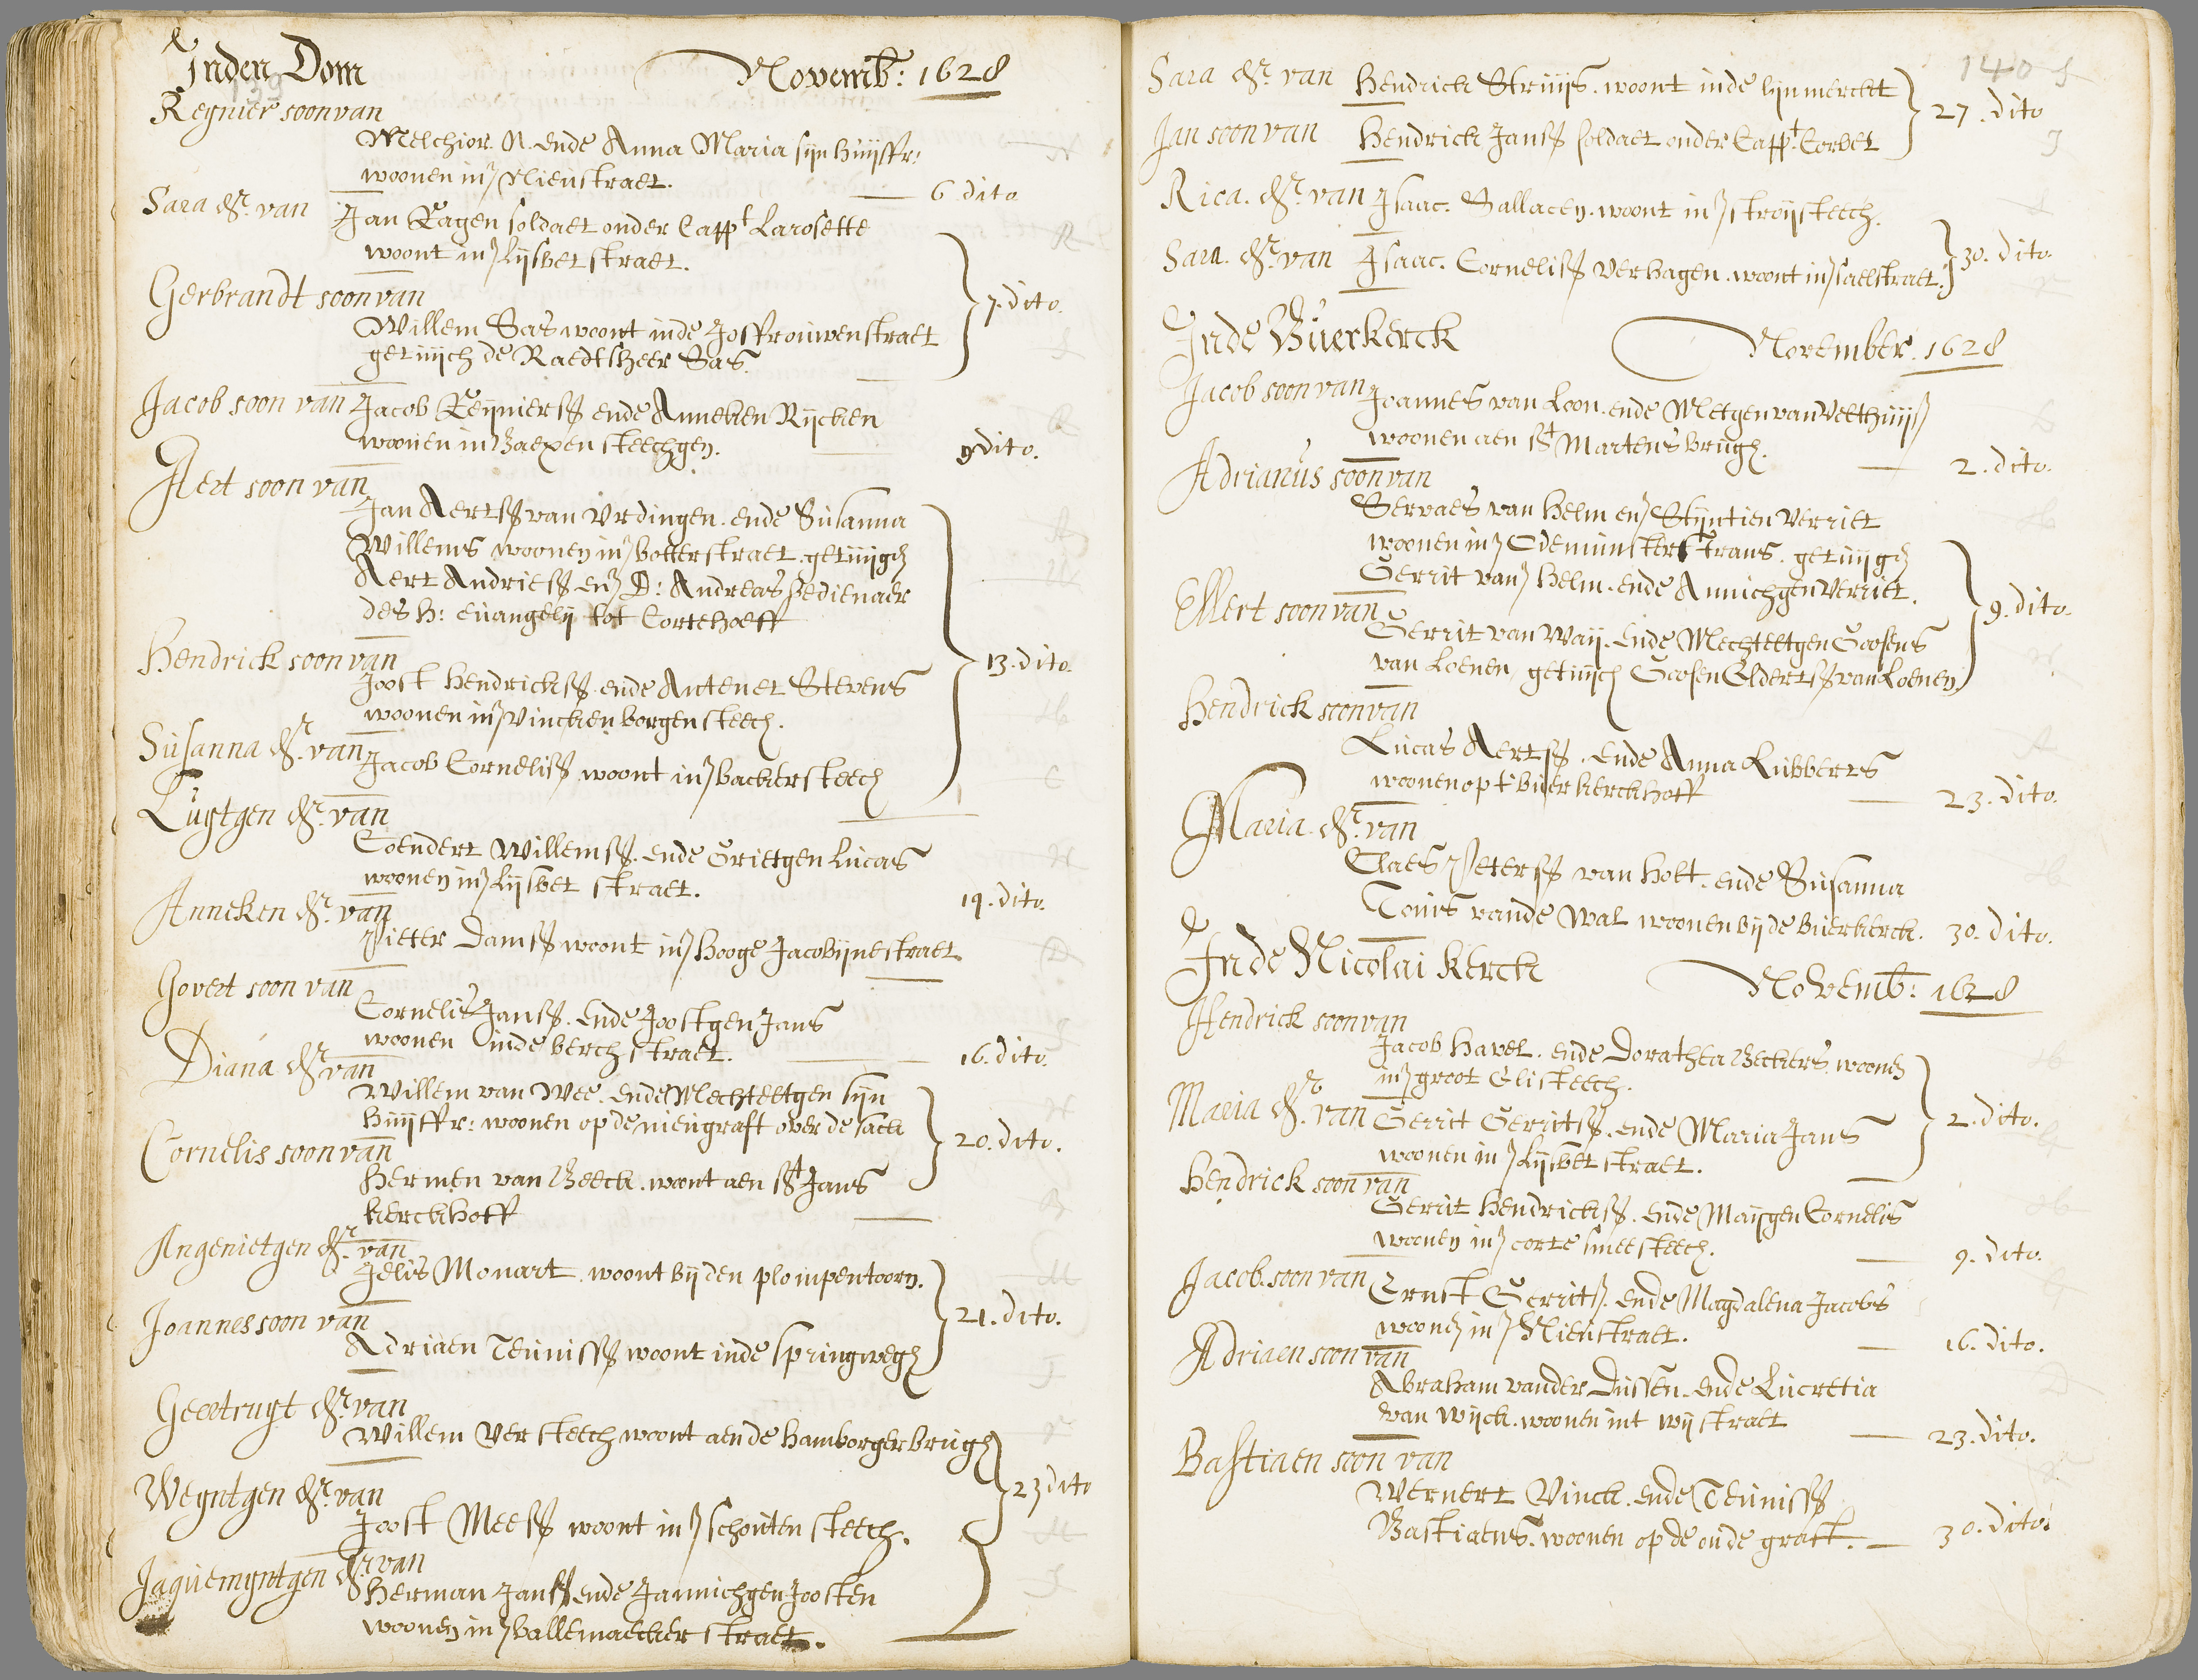 Inden Dom Novemb: 1628
139
Regnier soon van
Melchior. N. ende Anna Maria sijn huijsfr:
woonen inȝ Nieustraet. 6 dito
Sara dr. van
Jan Ragen soldaet onder Cappt Larosette
woont inȝ Lijsbet straet.
Gerbrandt soon van
Willem Sas woont inde Joffrouwenstraet 7. dito.
getuijch de Raedtsheer Sas.
Jacob soon van Jacob Reijnierss ende Anneken Rijcken
woonen in Baexen steechgen. 9 dito.
Aert soon van
Jan Aertss van Urdingen. ende Susanna
Willems woonen inȝ botterstraet. getuijgȝ
Aert Andriess enȝ D: Andreas bedienaer
des H: euangelij tot Cortehoeff
Hendrick soon van 13. dito.
Joost Hendrickss ende Antenet Stevens
woonen inȝ Vincken borgen steech.
Susanna dr. van Jacob Corneliss woont inȝ backersteech
Luijtgen dr. van
Coendert Willemss. ende Grietgen Lucas
woonen inȝ Lijsbet straet. 14. dito.
Anneken dr. van
Pieter Damss woont inȝ hooge Jacobijnestraet.
Govert soon van
Cornelis Janss. ende Joostgen Jans
woonen inde berchstraet. 16. dito.
Diana dr van
Willem van Wee. ende Mechteltgen sijn
huijsfr: woonen op de nieugraft over de sack 20. dito.
Cornelis soon van
Hermen van Beeck. wont aen st Jans
kerckhoff
Angenietgen dr. van
Jelis Monart. woont bij den plompentoorn.
Joannes soon van 21. dito.
Adriaen Teunisss woont inde springwegȝ
Geertruyt dr. van
Willem Versteech woont aende hamborgerbrugȝ
Weyntgen dr. van 23 dito
Joost Meess woont inȝ schouten steech.
Jaquemyntgen dr. van
Herman Janss ende Jannichgen Joosten
woonen inȝ ballemaecker straet.
140
Sara dr. van Hendrick Struijs. woont inde lijnmerckt 27. dito
Jan soon van Hendrick Janss soldaet onder Cappt. Corbet
Rica. dr. van Isaac. Sallacen. woont inȝ stroijsteech.
Sara. dr. van Isaac. Corneliss Verhagen. woont inȝ saelstraet. 30. dito.
Inde Buerkerck November. 1628
Jacob soon van Joannes van Loon. ende Metgen van Velthuijs
woonen aen st Martens brugȝ. 2. dito.
Adrianus soon van
Servaes van Helm enȝ Stijntien Verriet
woonen inȝ Oudemunster trans. getuijgȝ
Gerrit vanȝ Helm. ende Annichgen Verriet. 9. dito.
Ellert soon van
Gerrit van Waij. ende Mechteltgen Goosens
van Loenen, getuijch Goosen Eldertss van Loenen.
Hendrick soon van
Lucas Aertss. ende Anna Lubberts
woonen opt buerkerckhoff 23. dito.
Maria. dr. van
Claes Peterss van Holt. ende Susanna
Tonis vande Wal woonen bij de buerkerck. 30. dito.
Inde Nicolai kerck Novemb: 1628
Hendrick soon van
Jacob Havel. ende Dorathea Beckers. woonȝ
inȝ groot Elisteech.
Maria dr. van Gerrit Gerritss. ende Maria Jans 2. dito.
woonen inȝ Lijsbet straet.
Hendrick soon van
Gerrit Hendrickss. ende Maijgen Cornelis
woonen inȝ corte smeesteech. 9. dito.
Jacob. soon van Ernst Gerrits. ende Magdalena Jacobs
woonȝ inȝ Nieustraet. 16. dito.
Adriaen soon van
Abraham vander Dussen. ende Lucretia
van Wijck. woonen int wijstraet 23. dito.
Bastiaen soon van
Wernert Vinck. ende Teunisss
Bastiaens. woonen op de oude graft. 30. dito.